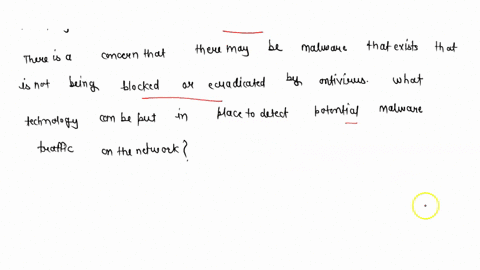 There is a concern that there may be malware that exists that
is not being blocked or ecradicated by antivirus. what
technology can be put in place to detect potential malware
traffic on the network?